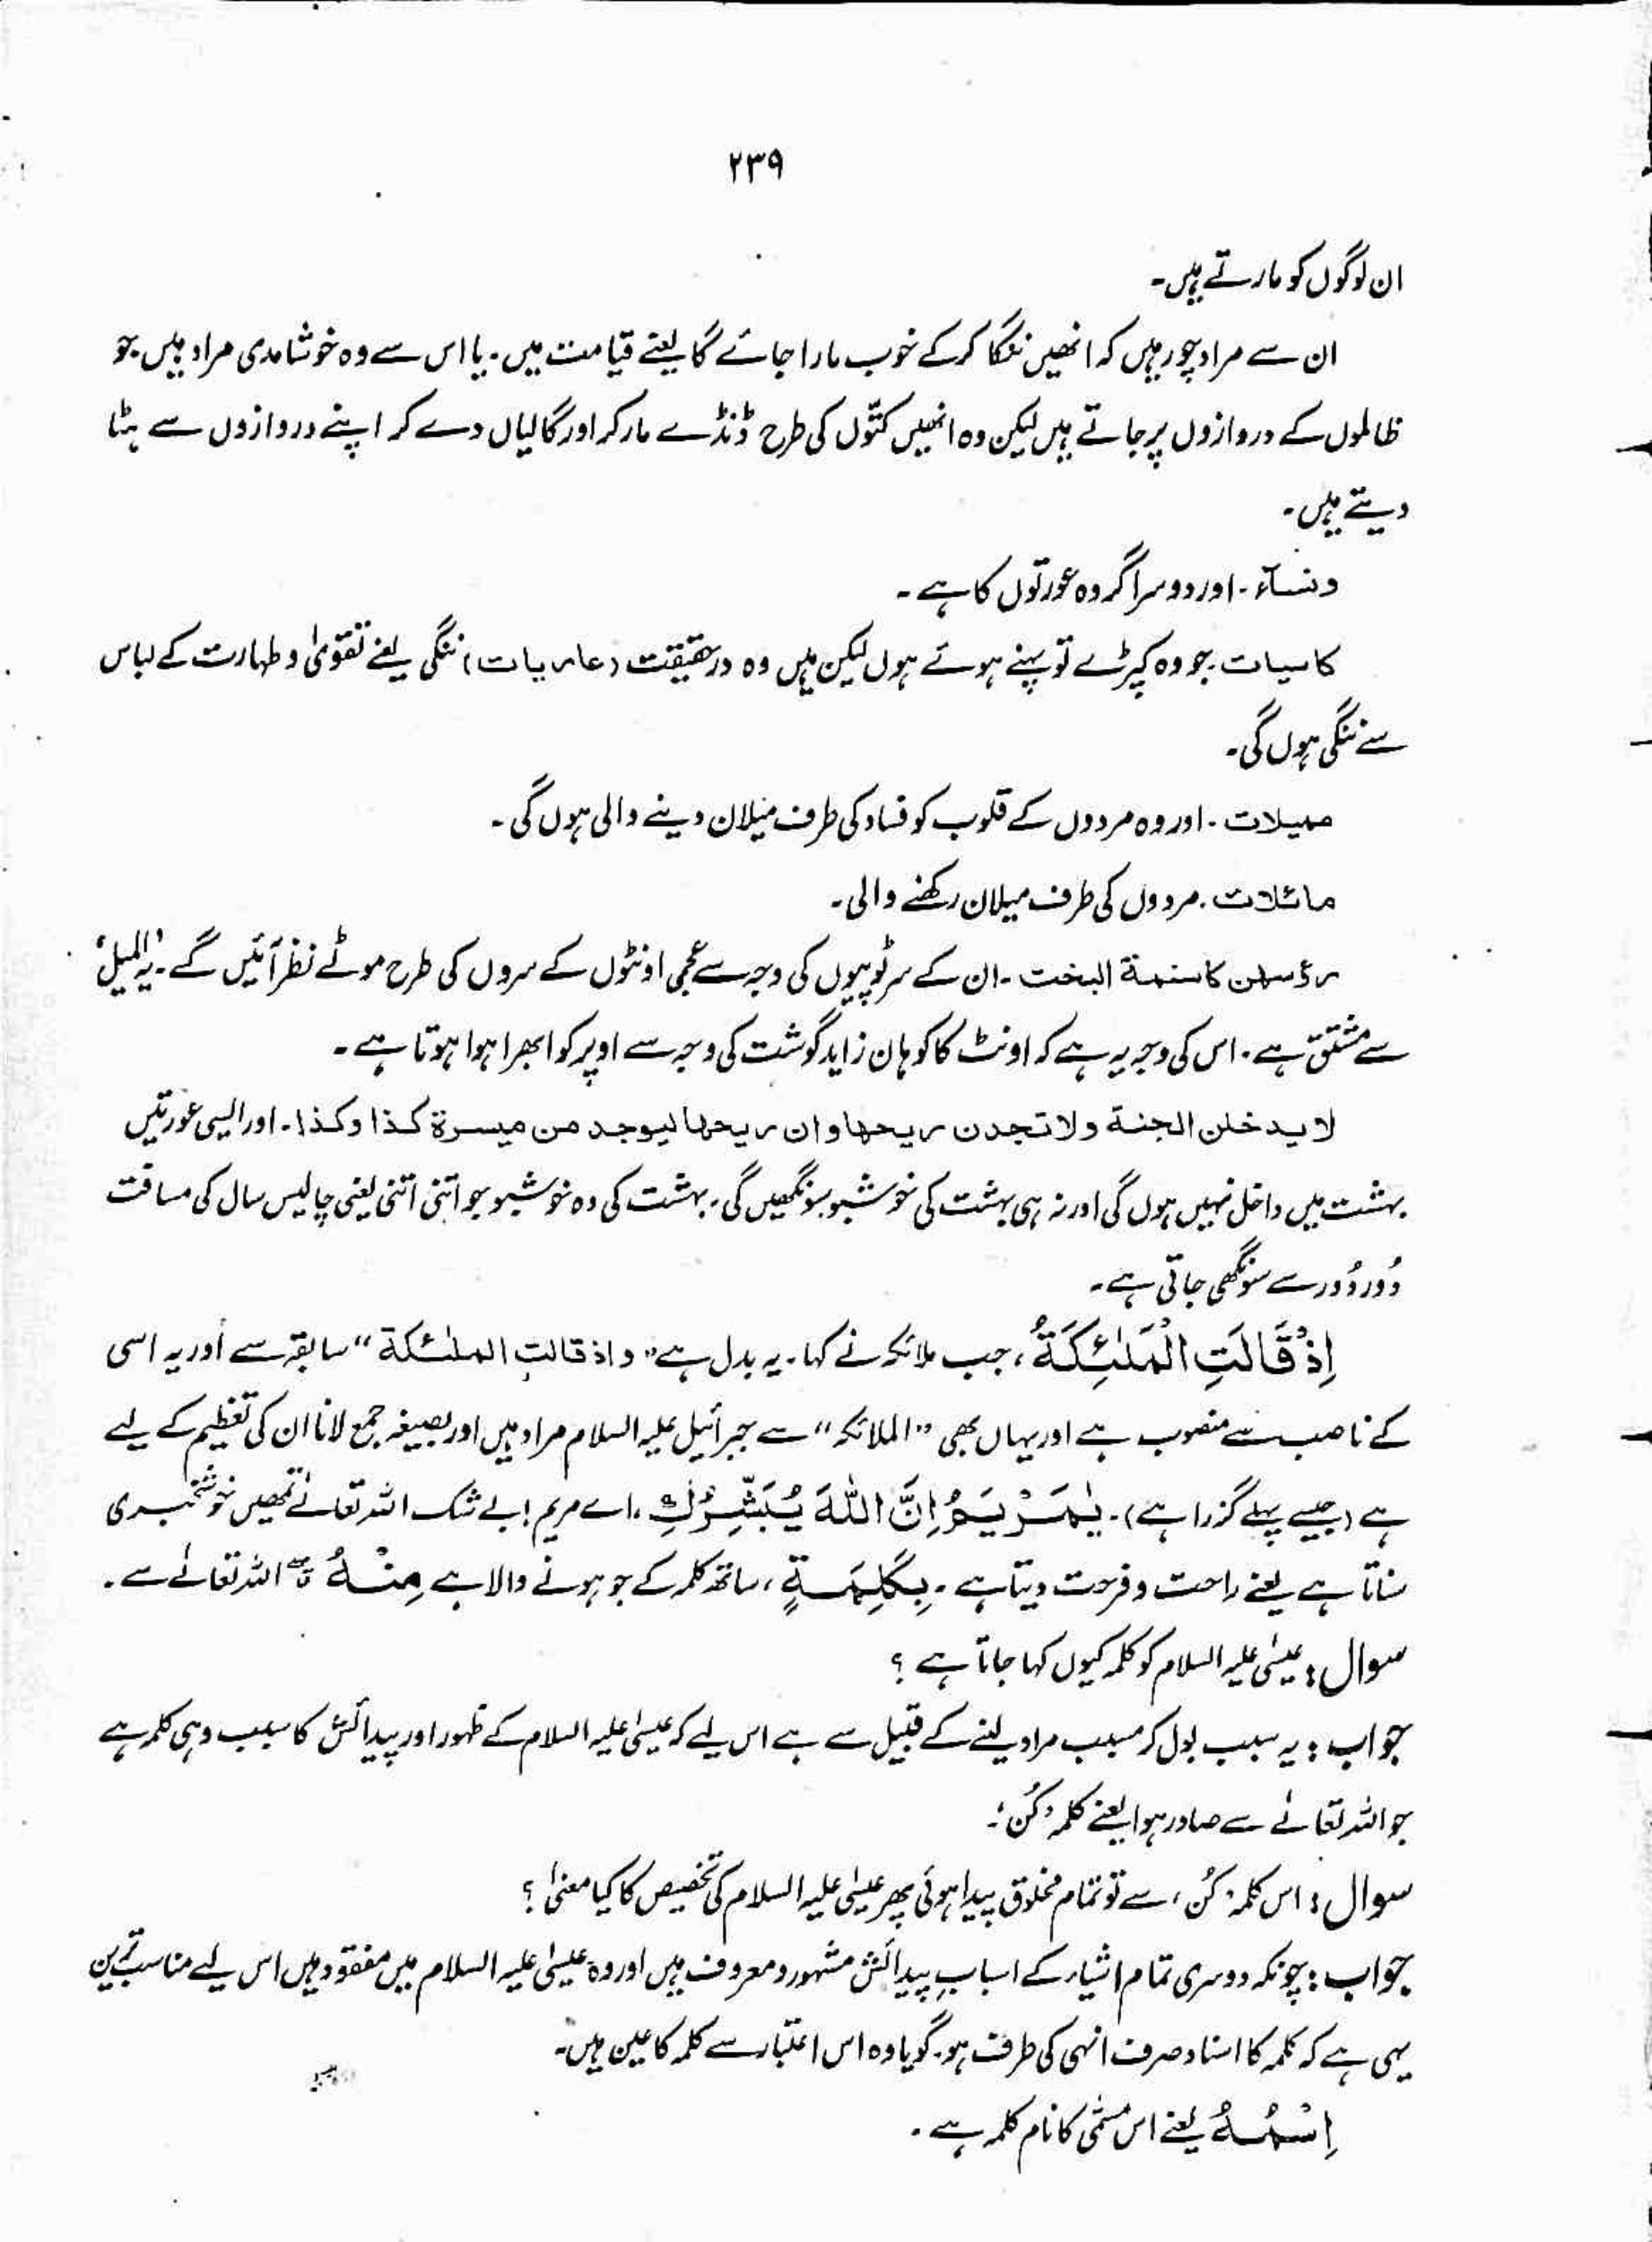 ۲۳۹
ان لوگوں کو مارتے ہیں۔
ان سے مراد چور ہیں کہ انھیں ننگا کرکے خوب مارا جائے گا یعنے قیامت میں۔ یا اس سے وہ خوشامدی مراد ہیں جو
ظالموں کے دروازوں پر جاتے ہیں لیکن وہ انھیں کتّوں کی طرح ڈنڈے مار کر اور گالیاں دے کر اپنے دروازوں سے ہٹا
دیتے ہیں۔
ونسآء۔ اور دوسرا گروہ عورتوں کا ہے۔
کاسیات۔ جو وہ کپڑے تو پہنے ہوئے ہوں لیکن ہیں وہ درحقیقت (عاریات) ننگی یعنے تقویٰ و طہارت کے لباس
سے ننگی ہوں گی۔
ممیلات۔ اور وہ مردوں کے قلوب کو فساد کی طرف میلان دینے والی ہوں گی۔
مائلات۔ مردوں کی طرف میلان رکھنے والی۔
رؤسہن کاسنمة البخت۔ ان کے سر ٹوپیوں کی وجہ سے عجمی اونٹوں کے سروں کی طرح موٹے نظر آئیں گے۔ یہ 'المیل'
سے مشتق ہے۔ اس کی وجہ یہ ہے کہ اونٹ کا کوہان زاید گوشت کی وجہ سے اوپر کو ابھرا ہوا ہوتا ہے۔
لا یدخلن الجنة ولا تجدن ریحھا وان ریحھا لیوجد من میسرة کذا وکذا۔ اور ایسی عورتیں
بہشت میں داخل نہیں ہوں گی اور نہ ہی بہشت کی خوشبو سونگھیں گی۔ بہشت کی وہ خوشبو جو اتنی اتنی یعنی چالیس سال کی مسافت
دُور دُور سے سونگھی جاتی ہے۔
اِذْ قَالَتِ الْمَلٰٓئِکَةُ، جب ملائکہ نے کہا۔ یہ بدل ہے "واذ قالتِ الملٰئکة" سابقہ سے اور یہ اسی
کے ناصب سے منصوب ہے اور یہاں بھی "الملائکہ" سے جبرائیل علیہ السلام مراد ہیں اور بصیغہ جمع لانا ان کی تعظیم کے لیے
ہے (جیسے پہلے گزرا ہے)۔ یٰمَرْیَمُ اِنَّ اللّٰہَ یُبَشِّرُکِ، اے مریم! بے شک اللہ تعالےٰ تمھیں خوشخبری
سناتا ہے یعنے راحت و فرحت دیتا ہے۔ بِکَلِمَةٍ، ساتھ کلمہ کے جو ہونے والا ہے مِنْہُ اللہ تعالےٰ سے۔
سوال: عیسٰی علیہ السلام کو کلمہ کیوں کہا جاتا ہے؟
جواب: یہ سبب بول کر مسبب مراد لینے کے قبیل سے ہے اس لیے کہ عیسٰی علیہ السلام کے ظہور اور پیدائش کا سبب وہی کلمہ ہے
جو اللہ تعالےٰ سے صادر ہوا یعنے کلمہ 'کُن'۔
سوال: اس کلمہ 'کُن' سے تو تمام مخلوق پیدا ہوئی پھر عیسٰی علیہ السلام کی تخصیص کا کیا معنیٰ؟
جواب: چونکہ دوسری تمام اشیاء کے اسبابِ پیدائش مشہور و معروف ہیں اور وہ عیسٰی علیہ السلام میں مفقود ہیں اس لیے مناسب ترین
یہی ہے کہ کلمہ کا اسناد صرف انہی کی طرف ہو۔ گویا وہ اس اعتبار سے کلمہ کا عین ہیں۔
اِسْمُہُ یعنے اس مسمّٰی کا نام کلمہ ہے۔